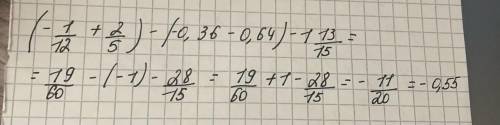 (-1/12 + 2/5) - (-0,36 - 0,64) - 1 13/15 =
= 19/60 - (-1) - 28/15 = 19/60 + 1 - 28/15 = - 11/20 = -0,55